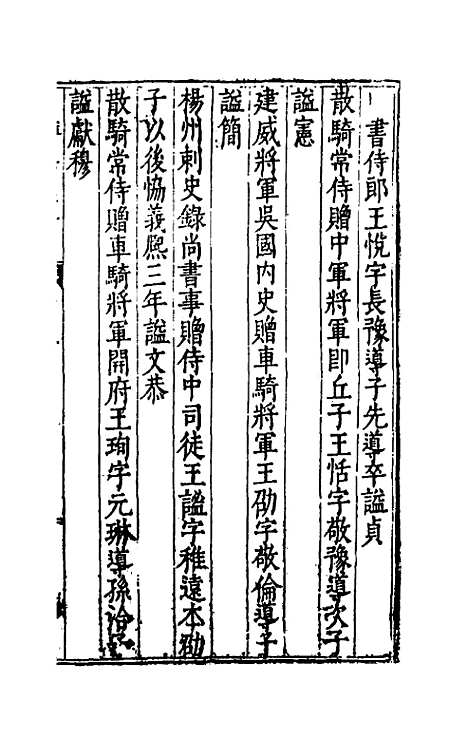 書侍郎王悅字長豫導子先導卒謚貞
散騎常侍贈中軍將軍即丘子王恬字敬豫導次子
謚憲
建威將軍吳國內史贈車騎將軍王劭字敬倫導子
謚簡
楊州刺史錄尚書事贈侍中司徒王謐字稚遠本劭
子以後恊義熈三年謚文恭
散騎常侍贈車騎將軍開府王珣字元琳導孫洽
謚獻穆